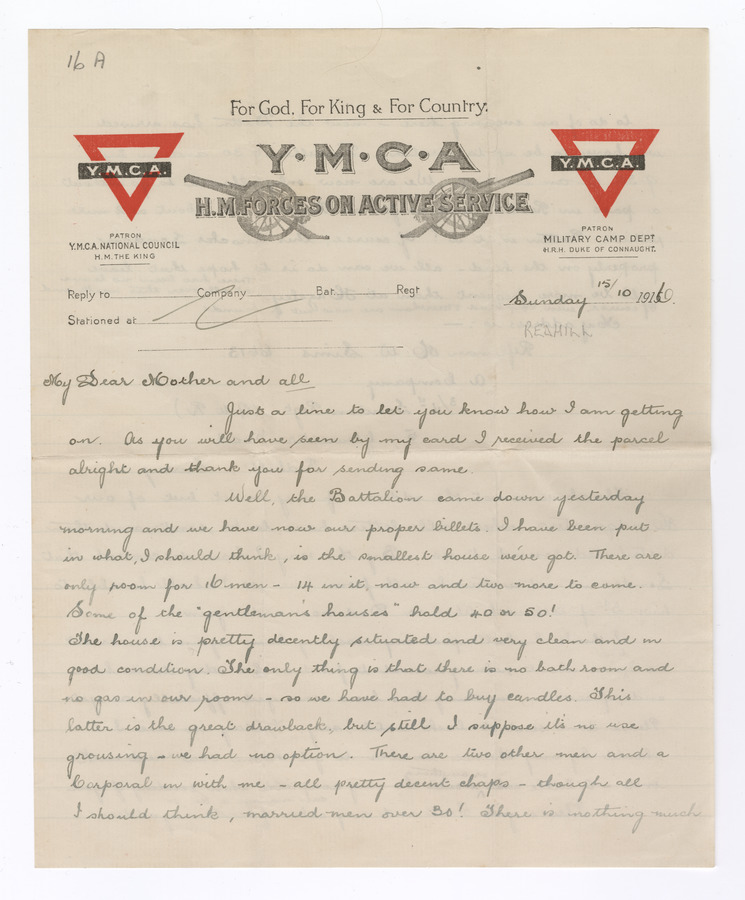 16 A
For God, For King & For Country.
Y.M.C.A.
Y.M.C.A.
Y·M·C·A
H.M. FORCES ON ACTIVE SERVICE
PATRON
Y.M.C.A. NATIONAL COUNCIL
H.M. THE KING
PATRON
MILITARY CAMP DEPT
H.R.H. DUKE OF CONNAUGHT.
Reply to Company Bat. Regt
Stationed at
Sunday 15/10 1916.
REDHILL
My Dear Mother and all
Just a line to let you know how I am getting
on. As you will have seen by my card I received the parcel
alright and thank you for sending same.
Well, the Battalion came down yesterday
morning and we have now our proper billets. I have been put
in what, I should think, is the smallest house we've got. There are
only room for 16 men - 14 in it, now and two more to come.
Some of the "gentleman's houses" hold 40 or 50!
The house is pretty decently situated and very clean and in
good condition. The only thing is that there is no bath room and
no gas in our room - so we have had to buy candles. This
latter is the great drawback, but still I suppose it's no use
grousing - we had no option. There are two other men and a
Corporal in with me - all pretty decent chaps - though all
I should think, married men over 30! There is nothing much